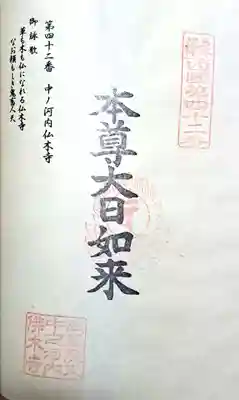 第四十二番　中ノ河内仏木寺
御詠歌
草も木も仏になれる仏木寺
なお頼もしき鬼畜人天
本尊大日如来
佛木寺